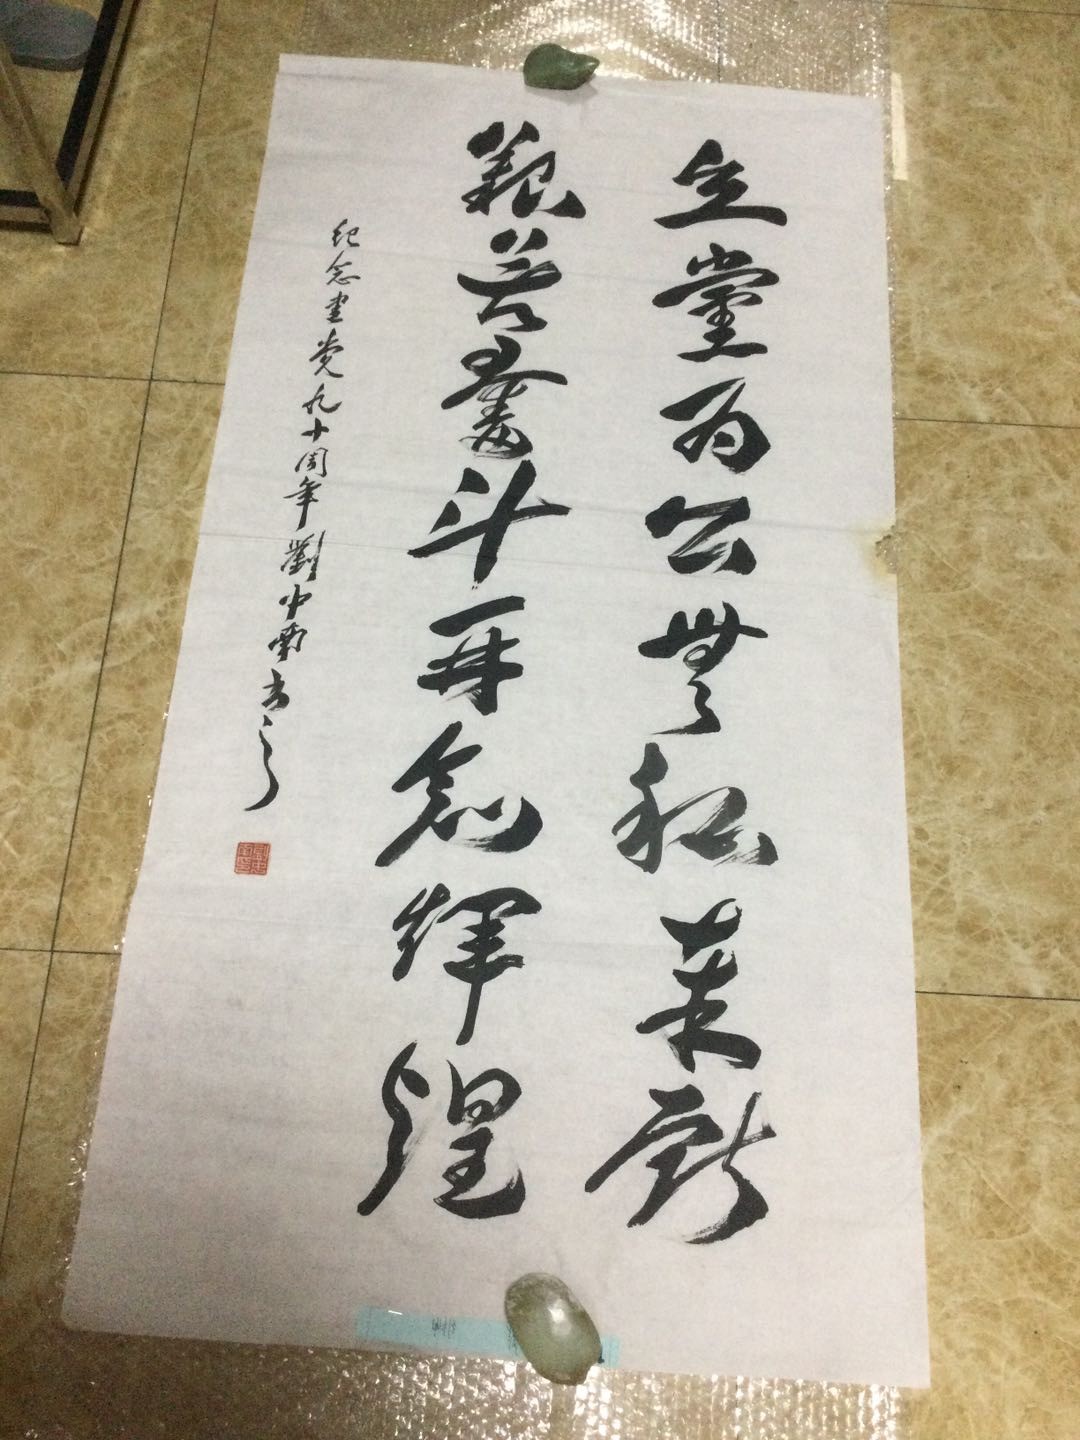 立黨为公無私奉獻
艱苦奮斗再創輝煌
纪念建党九十周年劉中南书之